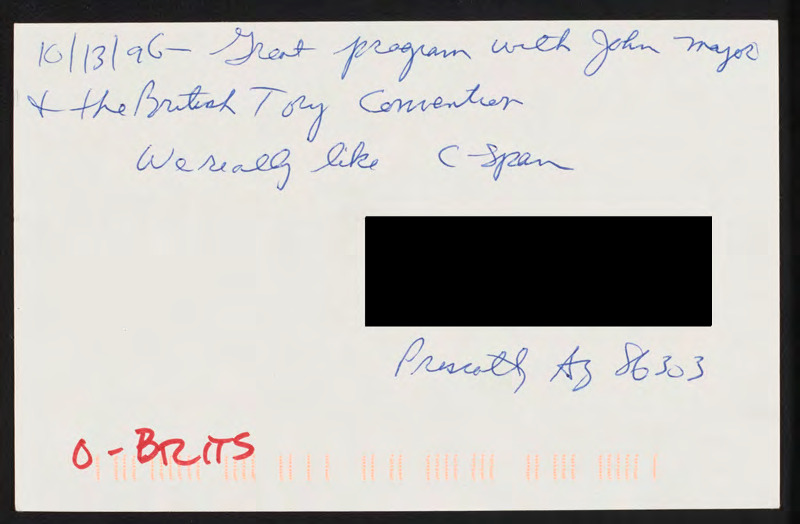 10/13/96- Great program with John Major
& the British Tory Convention
We really like C-Span
Prescott, Az 86303
O-BRITS